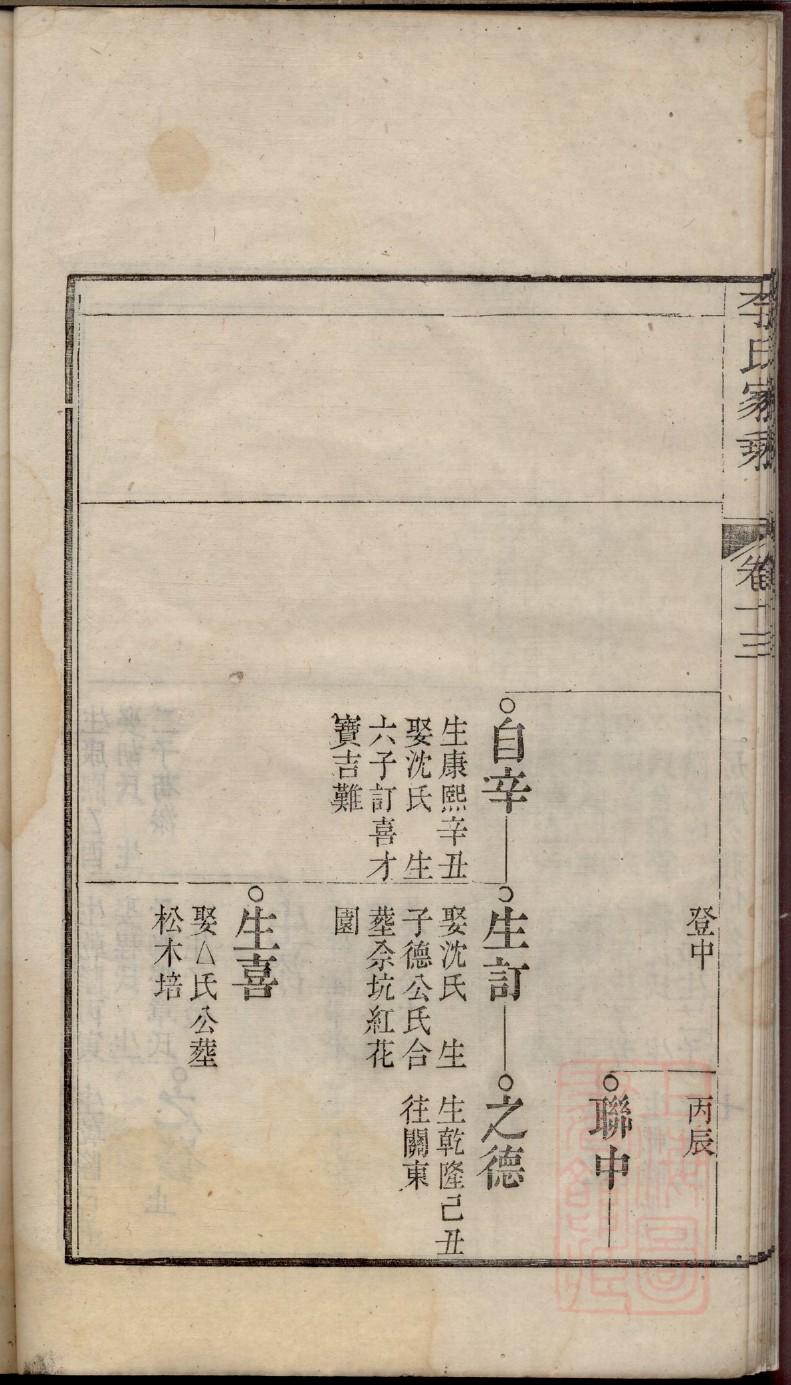 李氏家乘
卷十三
登中
丙辰
聯中
自辛
生康熙辛丑
娶沈氏 生
六子訂喜才
寶吉難
生訂
娶沈氏 生
子德公氏合
塟佘坑紅花
園
之德
生乾隆己丑
往關東
生喜
娶△氏公塟
松木培